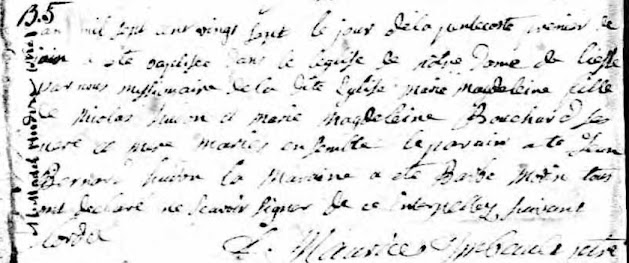 B.5
an mil sept cent vingt sept le jour de la pentecoste premier de
juin a été baptisee dans le eglise de notre Dame de liesse
par nous missionnaire de la dite Eglise marie magdeleine fille
de nicolas huvon et marie magdeleine Bouchard ses
pere et mere mariés ensemble le parain a été Jean
Bernard huvon la maraine a été Barbe morin tous
ont declaré ne scavoir signer de ce interpelley suivant
lordce
f. Maurice Imbault